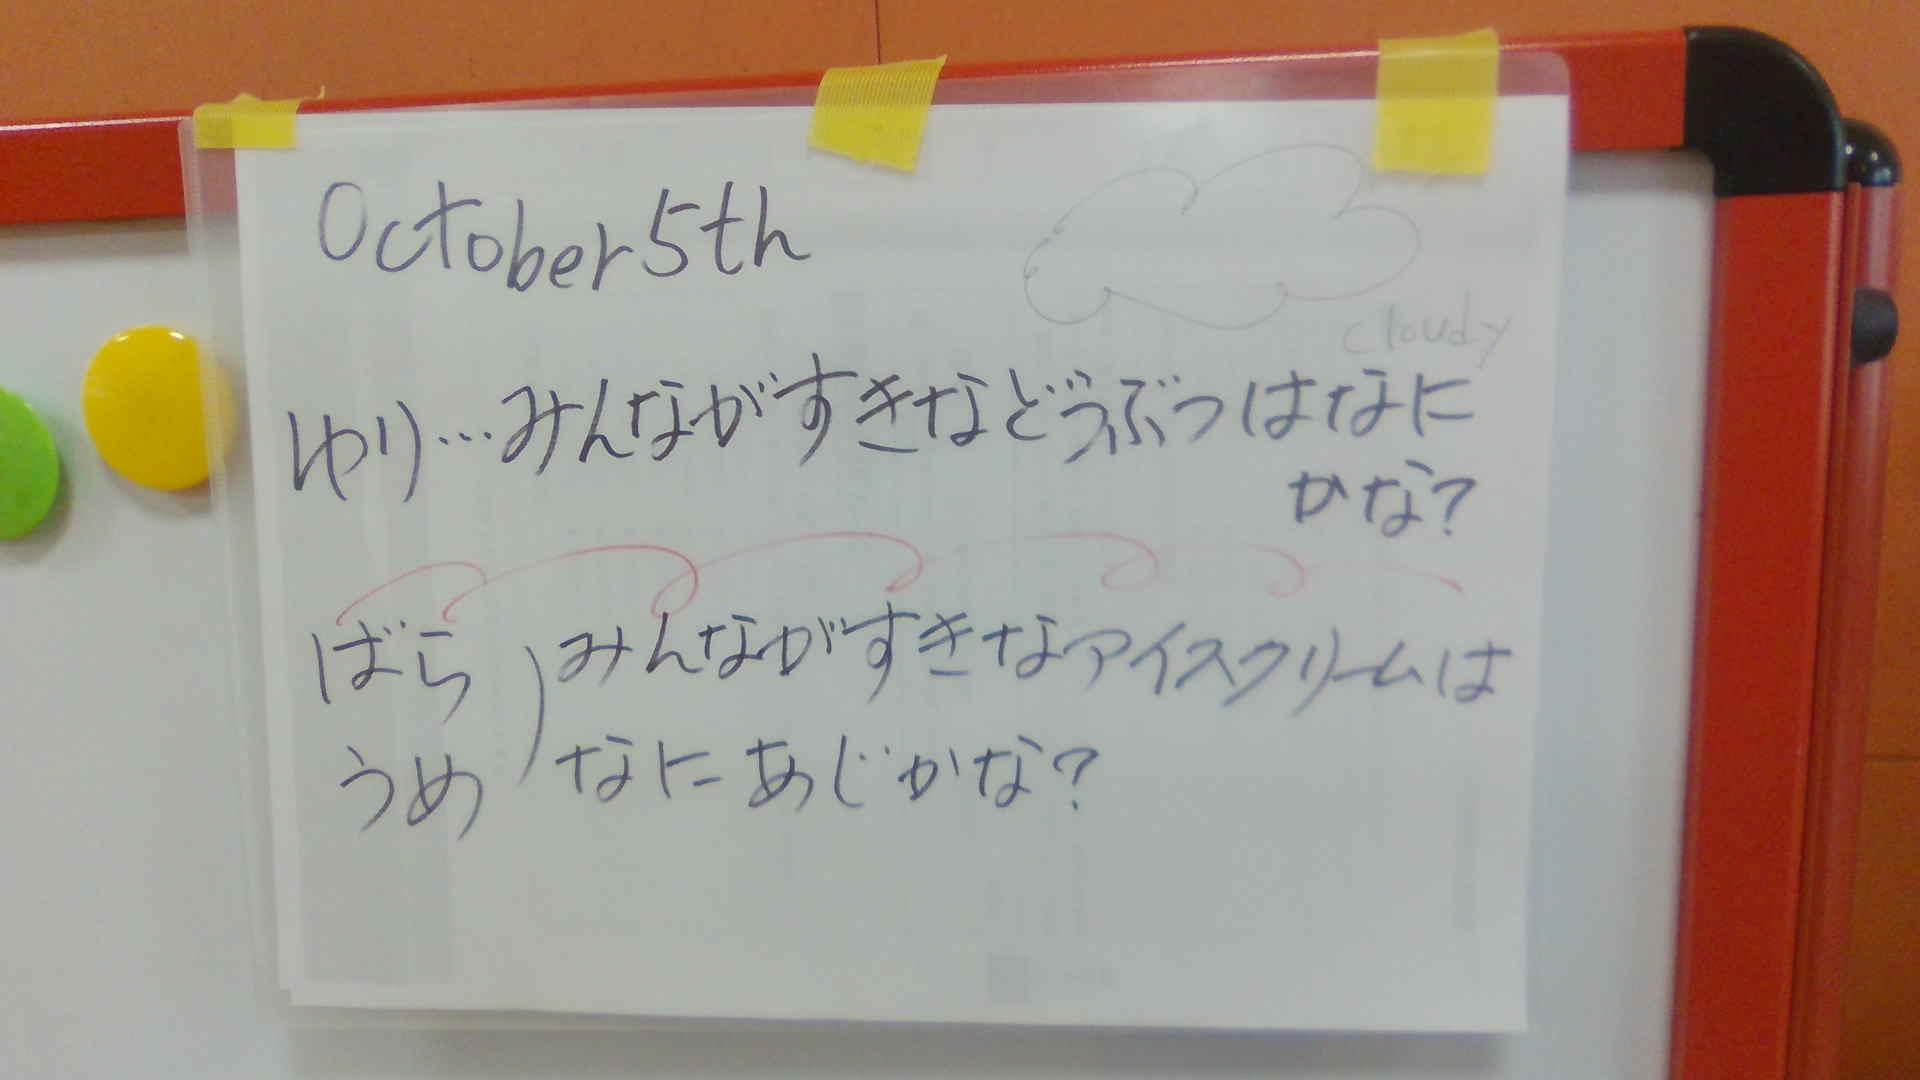 October 5th
cloudy
ゆり…みんながすきなどうぶつはなに
かな?
ばら
うめ
みんながすきなアイスクリームは
なにあじかな?